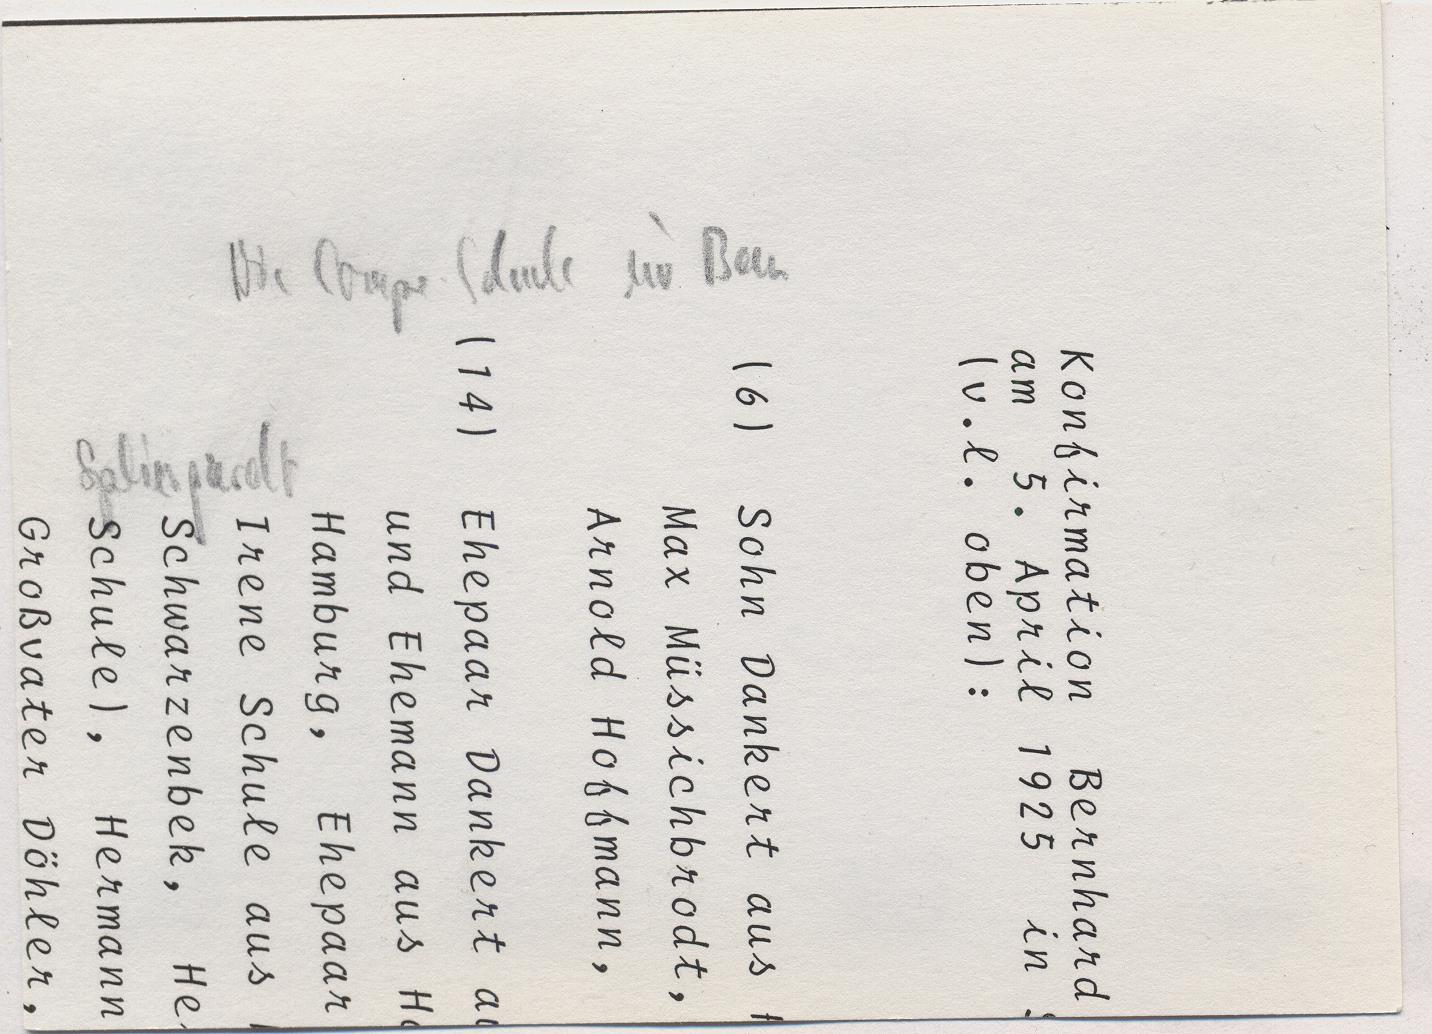 Die Campe Schule im Bau
Konfirmation Bernhard
am 5. April 1925 in
(v.l. oben):
(6) Sohn Dankert aus
Max Müssichbrodt,
Arnold Hoffmann,
(14) Ehepaar Dankert au
und Ehemann aus Ha
Hamburg, Ehepaar
Irene Schule aus
Schwarzenbek, He
Schule), Hermann
Großvater Döhler,